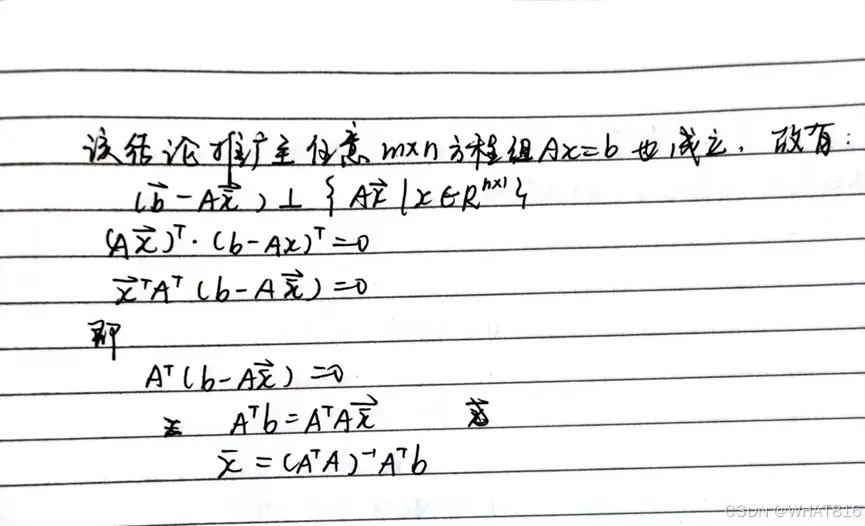 该结论推广至任意 m×n 方程组 Ax=b 也成立. 故有:
(b⃗ - Ax̄⃗) ⊥ { Ax⃗ | x∈R^{n×1} }
(Ax⃗)ᵀ·(b-Ax)ᵀ=0
x⃗ᵀAᵀ(b-Ax̄⃗)=0
即
Aᵀ(b-Ax̄⃗)=0
Aᵀb=AᵀAx̄⃗
x̄=(AᵀA)⁻¹Aᵀb
CSDN @WHAT816